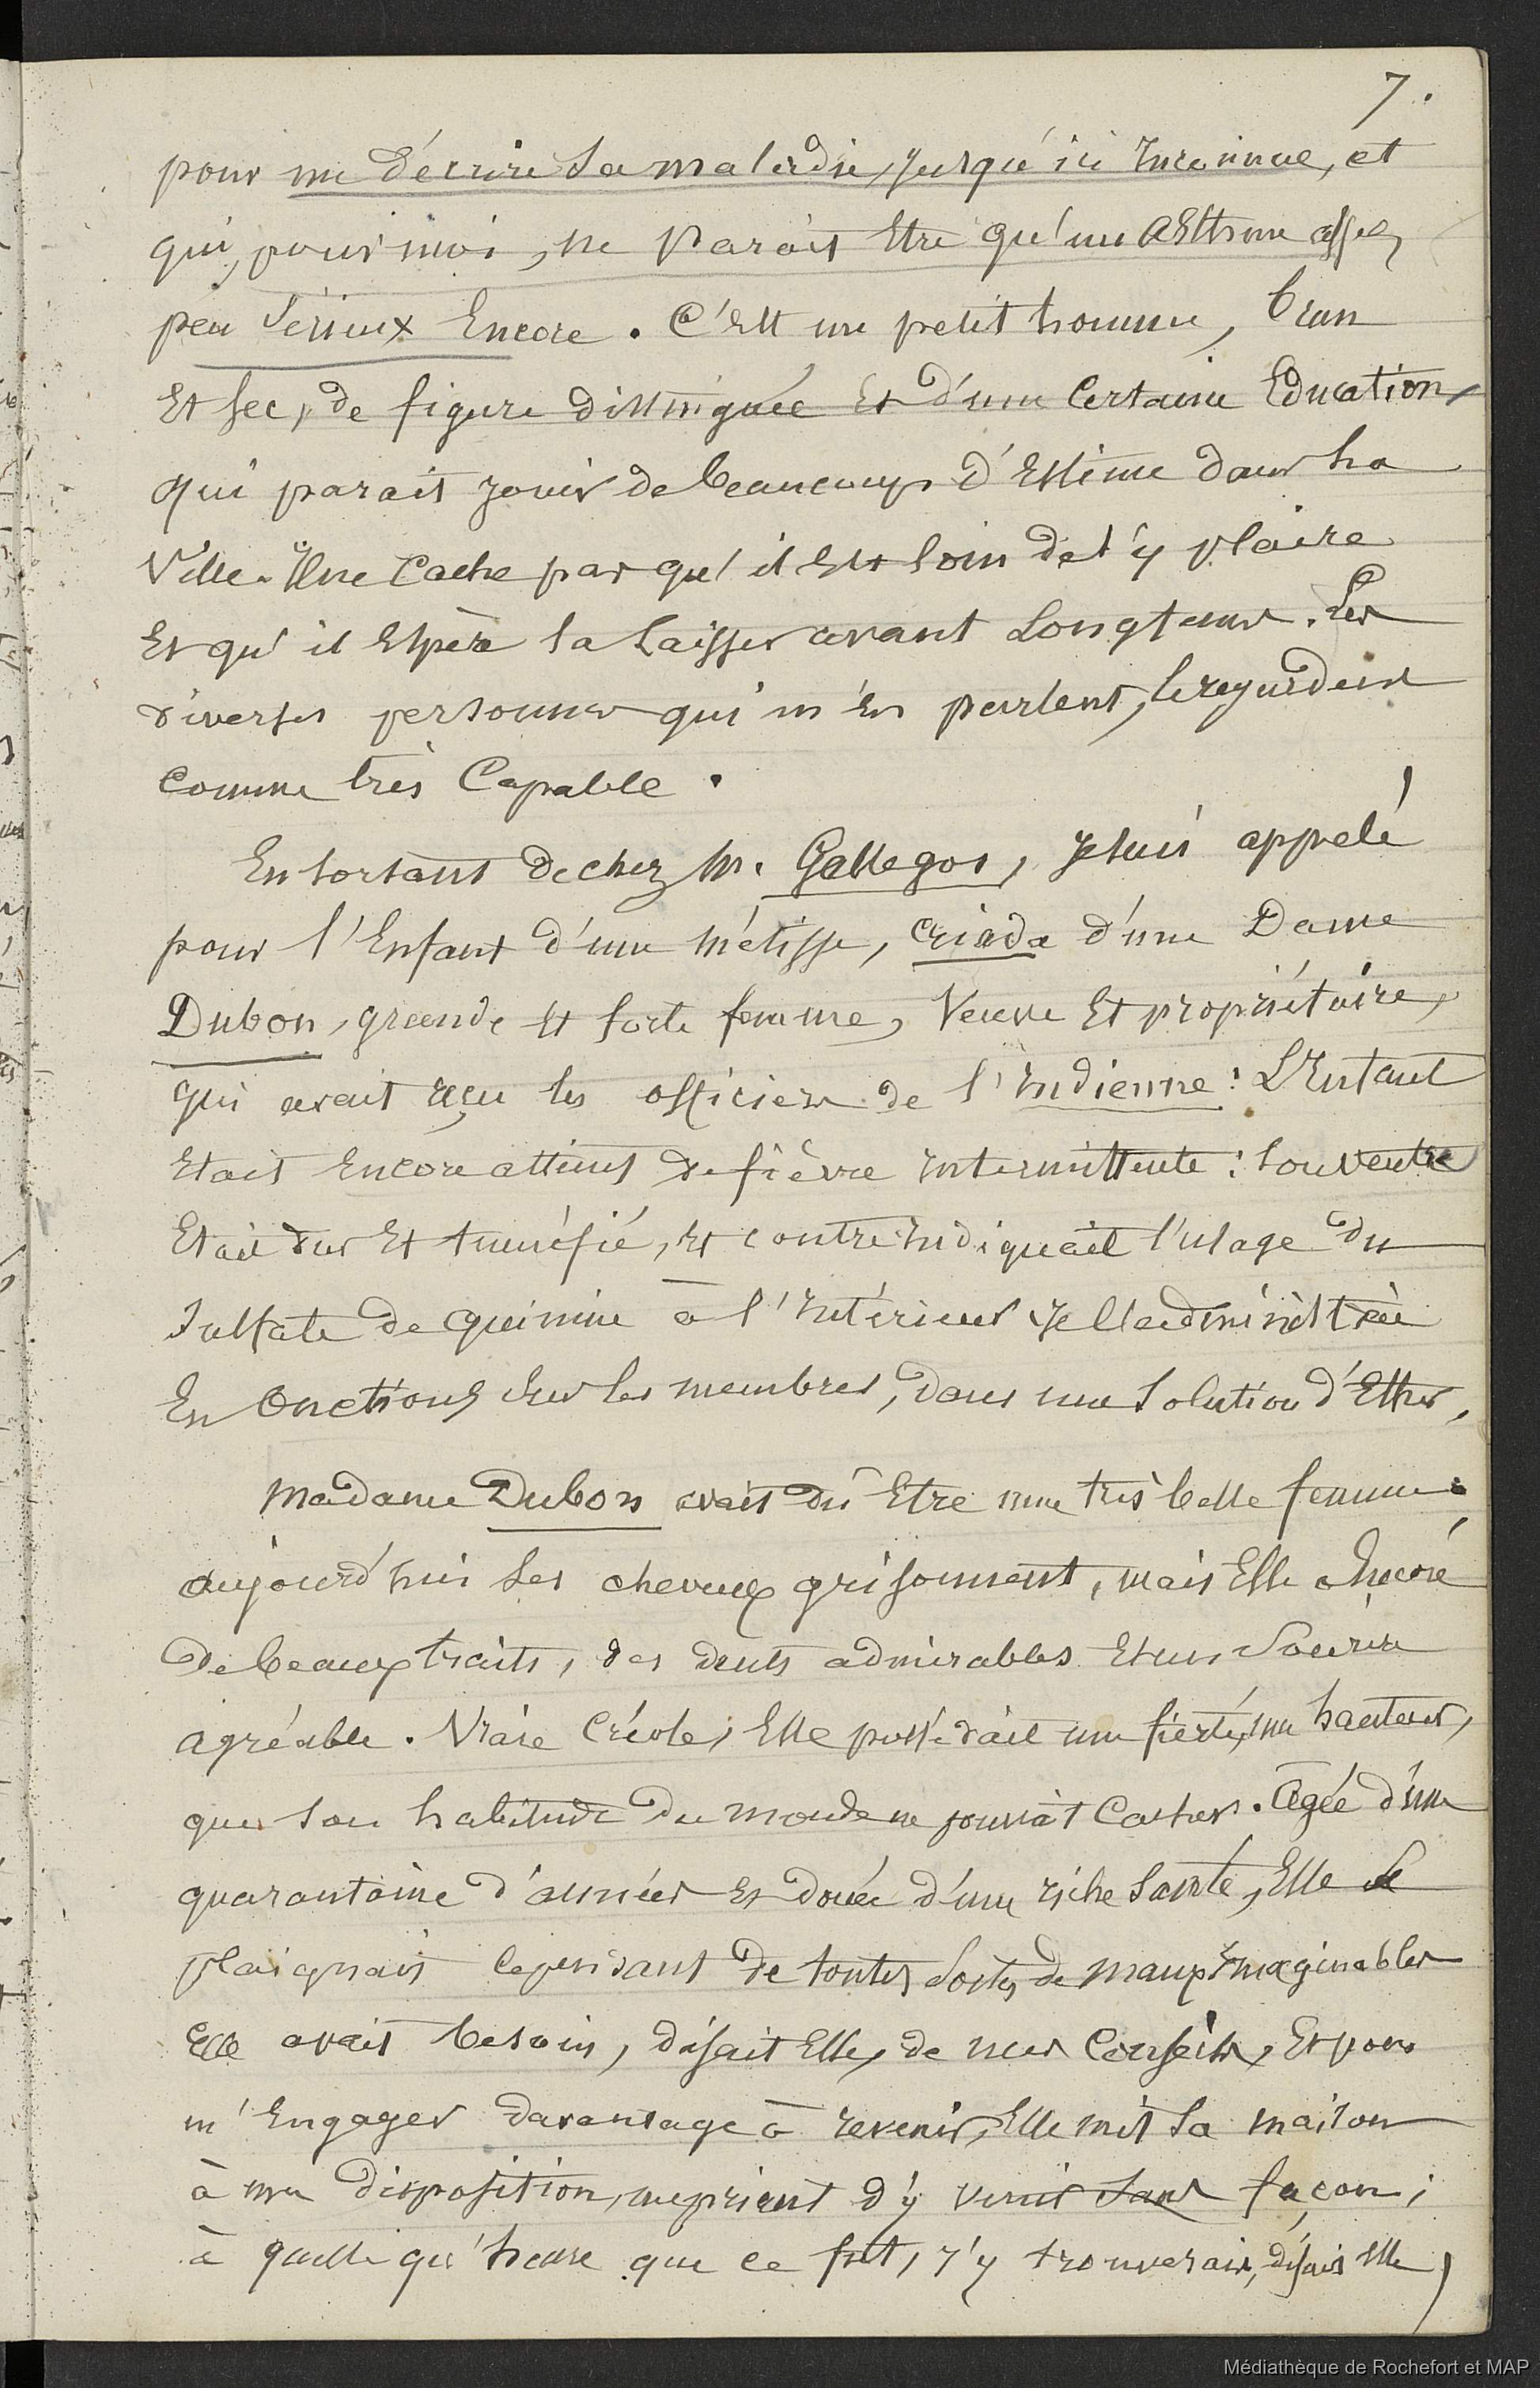 7.
pour me décrire sa maladie, jusqu'ici Inconnue, et
qui, pour moi, ne Parait Etre qu'un Asthme assez
peu Sérieux Encore. C'est un petit homme, brun
Et sec, de figure distinguée Et d'une Certaine Education,
qui parait jouir de beaucoup d'Estime dans la
Ville. Il ne Cache pas qu'il Est loin de s'y plaire
Et qu'il Espère la laisser avant Longtems. Les
diverses personnes qui m'en parlent, le regardent
comme très Capable.
En sortant de chez M. Gallegos, je suis appelé
pour l'Enfant d'une métisse, criada d'une Dame
Dubon, grande Et forte femme, Veuve Et propriétaire,
qui avait reçu les officiers de l'Indienne : L'Enfant
Etait Encore atteint de fièvre Intermittente : son ventre
Etait dur Et tuméfié, Et contre indiquait l'usage du
Sulfate de quinine à l'Intérieur je l'administrai
En Onctions sur les membres, dans une Solution d'Ether,
Madame Dubon avait dû Etre une très belle femme :
aujourd'hui ses cheveux grisonnent, mais Elle a Encore
de beaux traits, des dents admirables Et un Sourire
agréable. Vraie Créole, Elle possédait une fierté, une hauteur,
que son habitude du monde ne pouvait Cacher. Agée d'une
quarantaine d'années Et douée d'une riche Santé, Elle se
plaignait cependant de toutes sortes de maux Imaginables
Elle avait besoin, disait Elle, de mes Conseils, Et pour
m'Engager davantage à revenir, Elle mit sa maison
à ma disposition, me priant d'y venir sans façon ;
à quelle qu'heure que ce fut, j'y trouverais, disait Elle,
Médiathèque de Rochefort et MAP